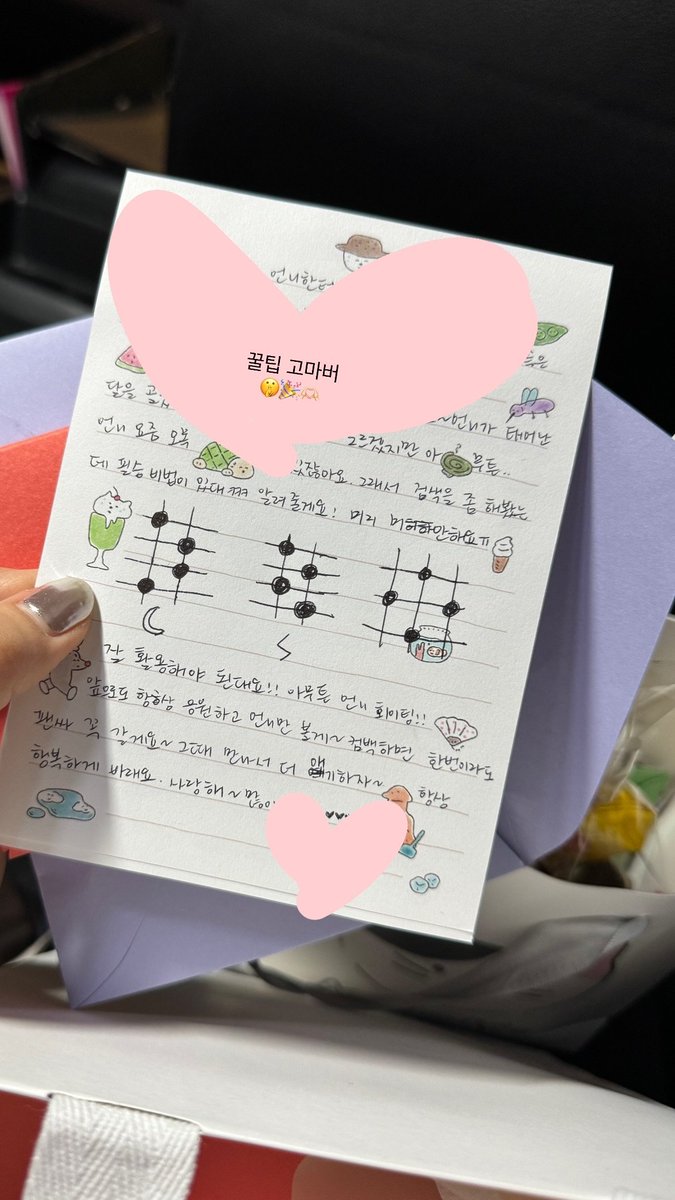 언니한테
꿀팁 고마버
달을
언니가 태어난
언니 요즘 오목
모르겠지만 아무튼..
있잖아요. 그래서 검색을 좀 해봤는
데 필승 비법이 있대ㅋㅋ 알려줄게요! 미리
잘 활용해야 된대요!! 아무튼 언니 화이팅!!
앞으로도 항상 응원하고 언니만 볼게~ 컴백하면 한번이라도
팬싸 꼭 갈게요~ 그때 만나서 더 얘기하자~ 항상
행복하게 바래요. 사랑해~